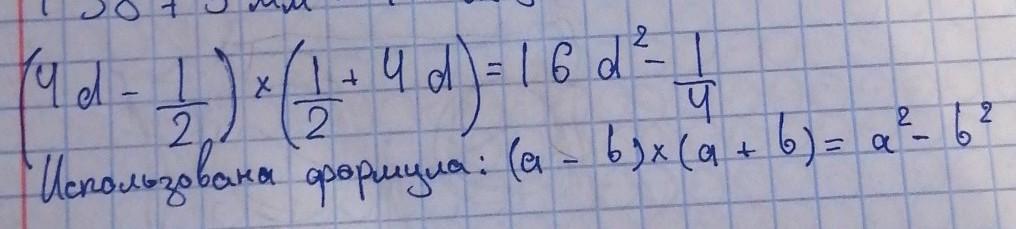 (4d - 1/2) × (1/2 + 4d) = 16d² - 1/4
Использована формула: (a - b)×(a + b) = a² - b²